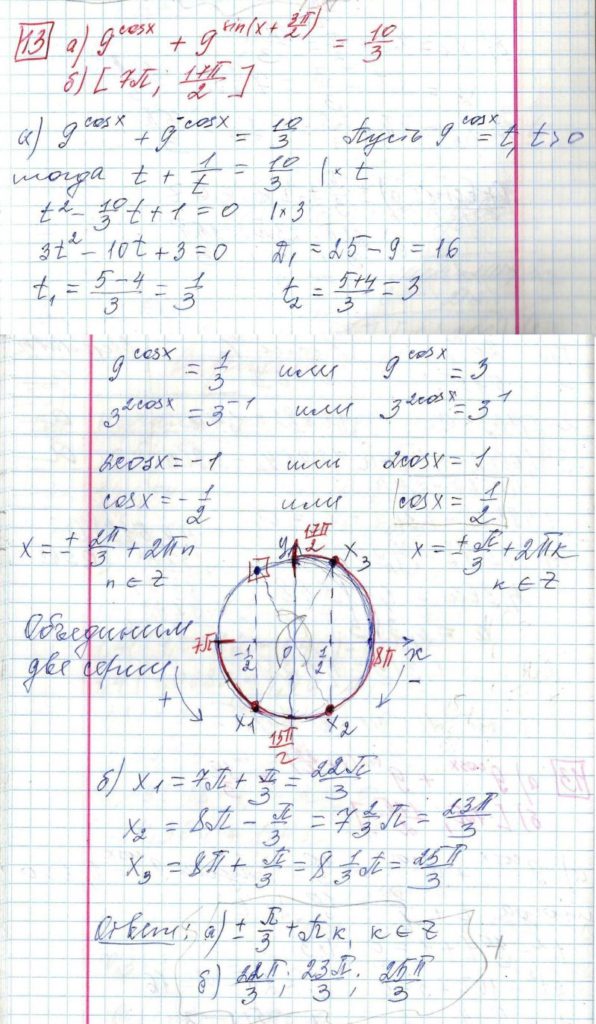 13 а) 9^cosx + 9^sin(x + 3π/2) = 10/3
б) [7π; 17π/2]
а) 9^cosx + 9^-cosx = 10/3 Пусть 9^cosx = t, t>0
тогда t + 1/t = 10/3 | × t
t² - 10/3 t + 1 = 0 | × 3
3t² - 10t + 3 = 0 Д₁ = 25 - 9 = 16
t₁ = (5-4)/3 = 1/3 t₂ = (5+4)/3 = 3
9^cosx = 1/3 или 9^cosx = 3
3^2cosx = 3^-1 или 3^2cosx = 3^1
2cosx = -1 или 2cosx = 1
cosx = -1/2 или cosx = 1/2
x = ± 2π/3 + 2πn x = ± π/3 + 2πk
n ∈ Z k ∈ Z
y 17π/2 x₃
Объединим
две серии
7π -1/2 0 1/2 8π x
+ -
x₁ 15π/2 x₂
б) x₁ = 7π + π/3 = 22π/3
x₂ = 8π - π/3 = 7 2/3 π = 23π/3
x₃ = 8π + π/3 = 8 1/3 π = 25π/3
Ответ: а) ± π/3 + πk, k ∈ Z
б) 22π/3; 23π/3; 25π/3
+